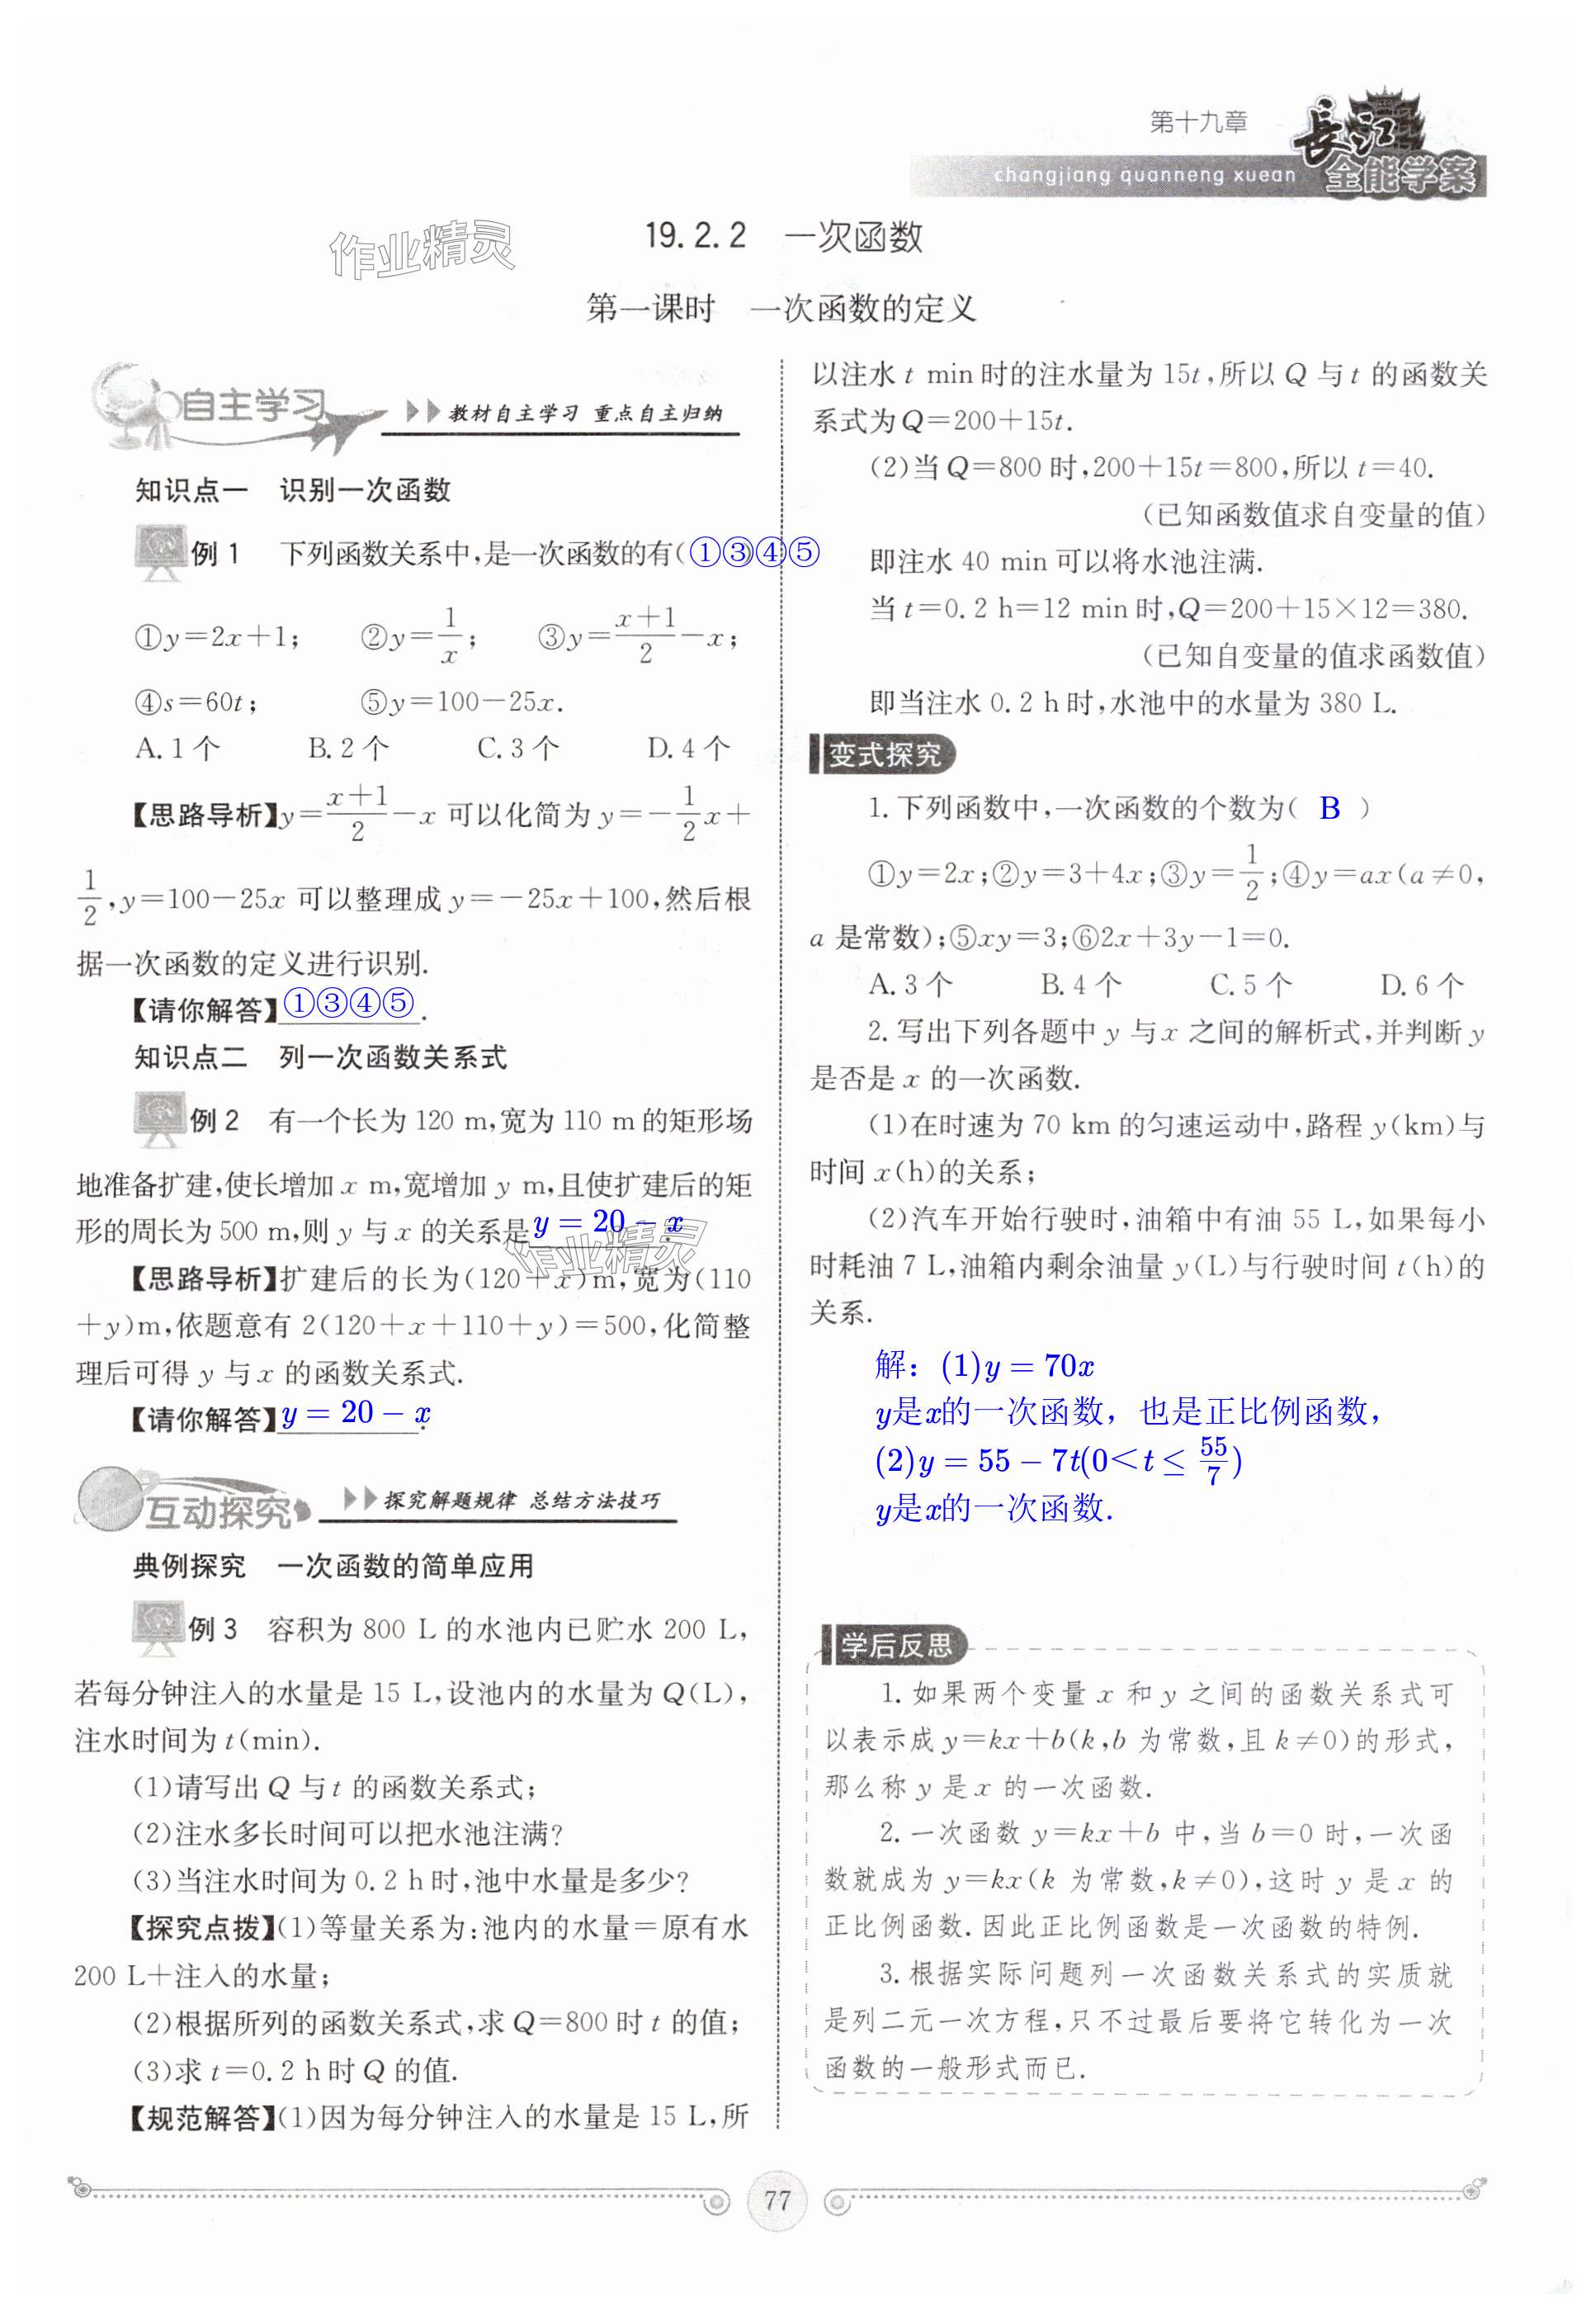 第十九章
長江
changjiang quanneng xuean 全能学案
作业精灵
19.2.2 一次函数
第一课时 一次函数的定义
自主学习 教材自主学习 重点自主归纳
知识点一 识别一次函数
例 1 下列函数关系中,是一次函数的有(①③④⑤
①y=2x+1; ②y=1/x; ③y=(x+1)/2-x;
④s=60t; ⑤y=100-25x.
A.1个 B.2个 C.3个 D.4个
【思路导析】y=(x+1)/2-x 可以化简为 y=-1/2x+
1/2,y=100-25x 可以整理成 y=-25x+100,然后根
据一次函数的定义进行识别.
【请你解答】①③④⑤.
知识点二 列一次函数关系式
例 2 有一个长为 120 m,宽为 110 m 的矩形场
地准备扩建,使长增加 x m,宽增加 y m,且使扩建后的矩
形的周长为 500 m,则 y 与 x 的关系是 y=20-x.
作业精灵
【思路导析】扩建后的长为(120+x)m,宽为(110
+y)m,依题意有 2(120+x+110+y)=500,化简整
理后可得 y 与 x 的函数关系式.
【请你解答】y=20-x.
互动探究 探究解题规律 总结方法技巧
典例探究 一次函数的简单应用
例 3 容积为 800 L 的水池内已贮水 200 L,
若每分钟注入的水量是 15 L,设池内的水量为 Q(L),
注水时间为 t(min).
(1)请写出 Q 与 t 的函数关系式;
(2)注水多长时间可以把水池注满?
(3)当注水时间为 0.2 h 时,池中水量是多少?
【探究点拨】(1)等量关系为:池内的水量=原有水
200 L+注入的水量;
(2)根据所列的函数关系式,求 Q=800 时 t 的值;
(3)求 t=0.2 h 时 Q 的值.
【规范解答】(1)因为每分钟注入的水量是 15 L,所
以注水 t min 时的注水量为 15t,所以 Q 与 t 的函数关
系式为 Q=200+15t.
(2)当 Q=800 时,200+15t=800,所以 t=40.
(已知函数值求自变量的值)
即注水 40 min 可以将水池注满.
当 t=0.2 h=12 min 时,Q=200+15×12=380.
(已知自变量的值求函数值)
即当注水 0.2 h 时,水池中的水量为 380 L.
变式探究
1.下列函数中,一次函数的个数为( B )
①y=2x;②y=3+4x;③y=1/2;④y=ax(a≠0,
a 是常数);⑤xy=3;⑥2x+3y-1=0.
A.3个 B.4个 C.5个 D.6个
2.写出下列各题中 y 与 x 之间的解析式,并判断 y
是否是 x 的一次函数.
(1)在时速为 70 km 的匀速运动中,路程 y(km)与
时间 x(h)的关系;
(2)汽车开始行驶时,油箱中有油 55 L,如果每小
时耗油 7 L,油箱内剩余油量 y(L)与行驶时间 t(h)的
关系.
解：(1)y=70x
y是x的一次函数，也是正比例函数，
(2)y=55-7t(0<t≤55/7)
y是x的一次函数.
学后反思
1.如果两个变量 x 和 y 之间的函数关系式可
以表示成 y=kx+b(k,b 为常数,且 k≠0)的形式,
那么称 y 是 x 的一次函数.
2.一次函数 y=kx+b 中,当 b=0 时,一次函
数就成为 y=kx(k 为常数,k≠0),这时 y 是 x 的
正比例函数.因此正比例函数是一次函数的特例.
3.根据实际问题列一次函数关系式的实质就
是列二元一次方程,只不过最后要将它转化为一次
函数的一般形式而已.
77